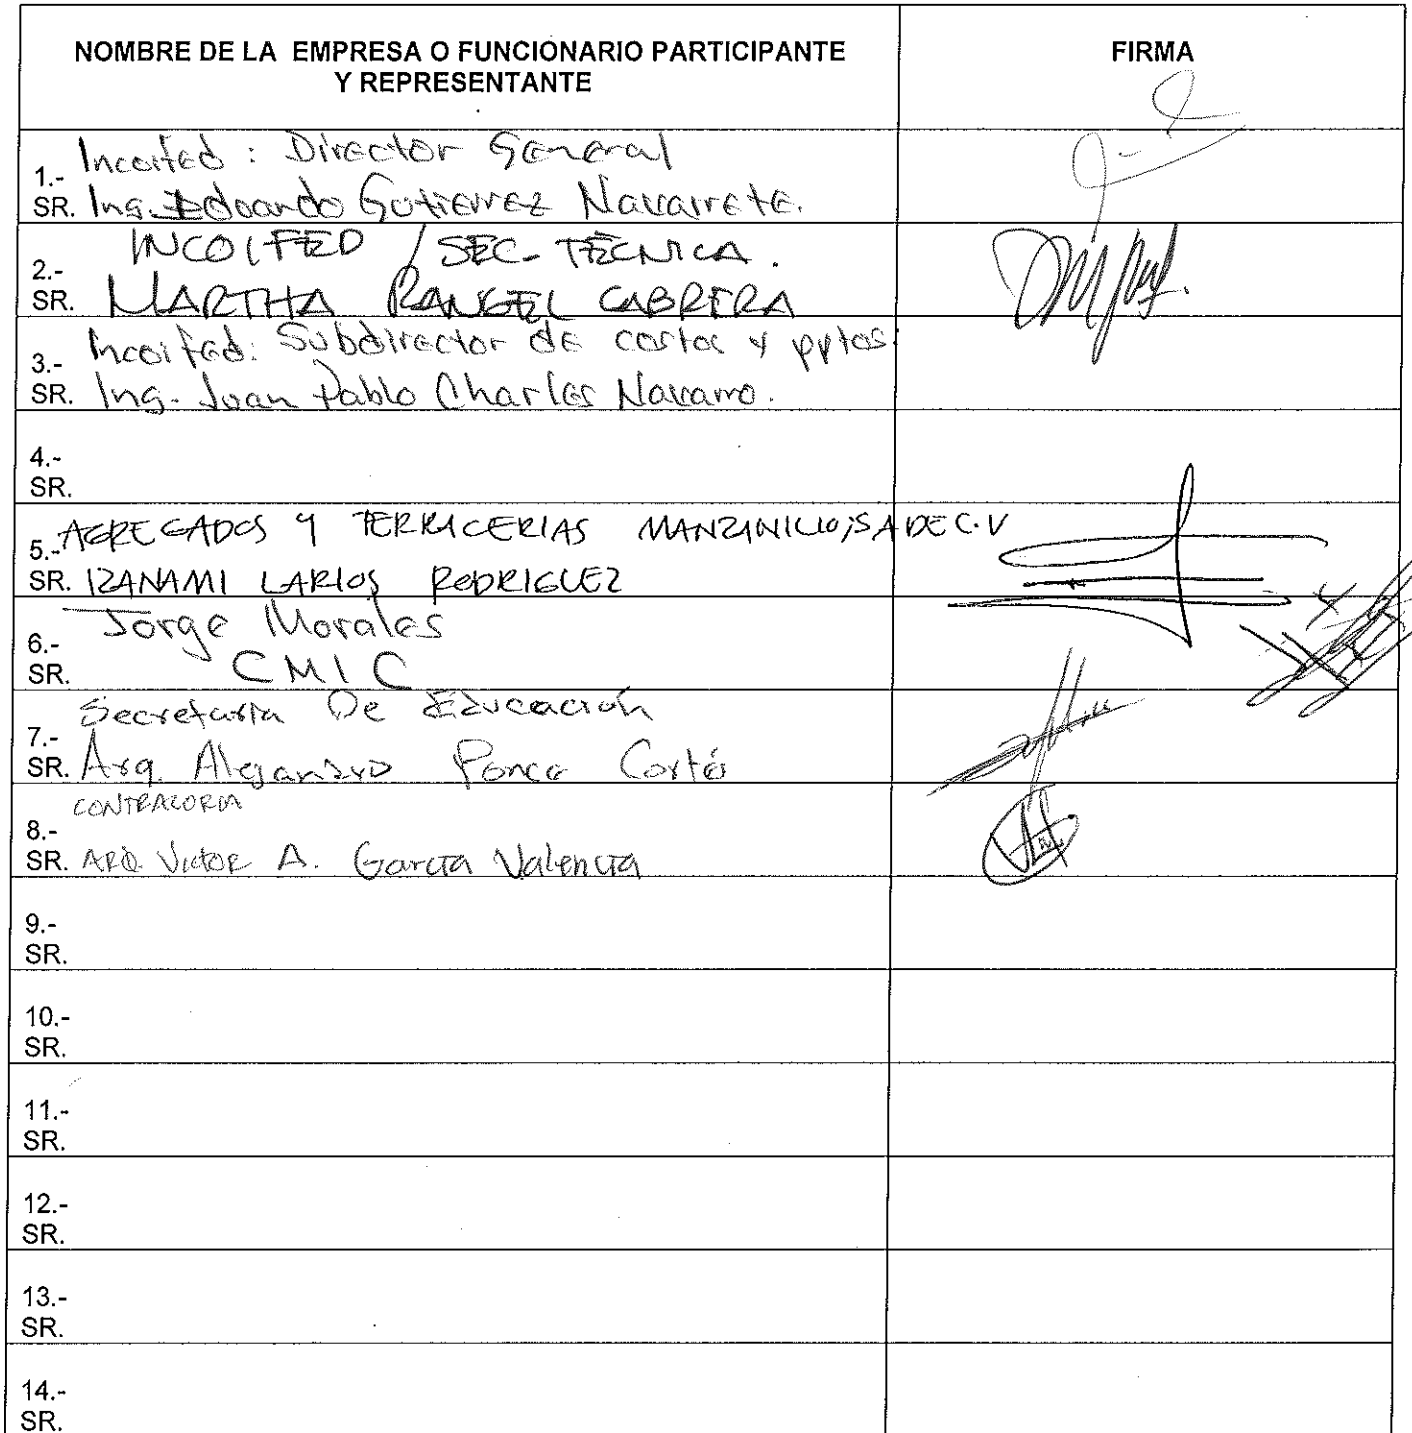 NOMBRE DE LA EMPRESA O FUNCIONARIO PARTICIPANTE
Y REPRESENTANTE
FIRMA
Incoifed : Director General
1.-
SR. Ing. Edoardo Gutierrez Navarrete.
INCOIFED / SEC. TÉCNICA.
2.-
SR. MARTHA RANGEL CABRERA
Incoifed: Subdirector de costos y pptos.
3.-
SR. Ing. Juan Pablo Charles Navarro.
4.-
SR.
5.- AGREGADOS Y TERRACERIAS MANZANILLO, SA DE C.V
SR. IZANAMI LARIOS RODRIGUEZ
Jorge Morales
6.-
SR. CMIC
Secretaria De Educación
7.-
SR. Arq. Alejandro Ponce Cortés
CONTRALORIA
8.-
SR. ARQ. Victor A. García Valencia
9.-
SR.
10.-
SR.
11.-
SR.
12.-
SR.
13.-
SR.
14.-
SR.